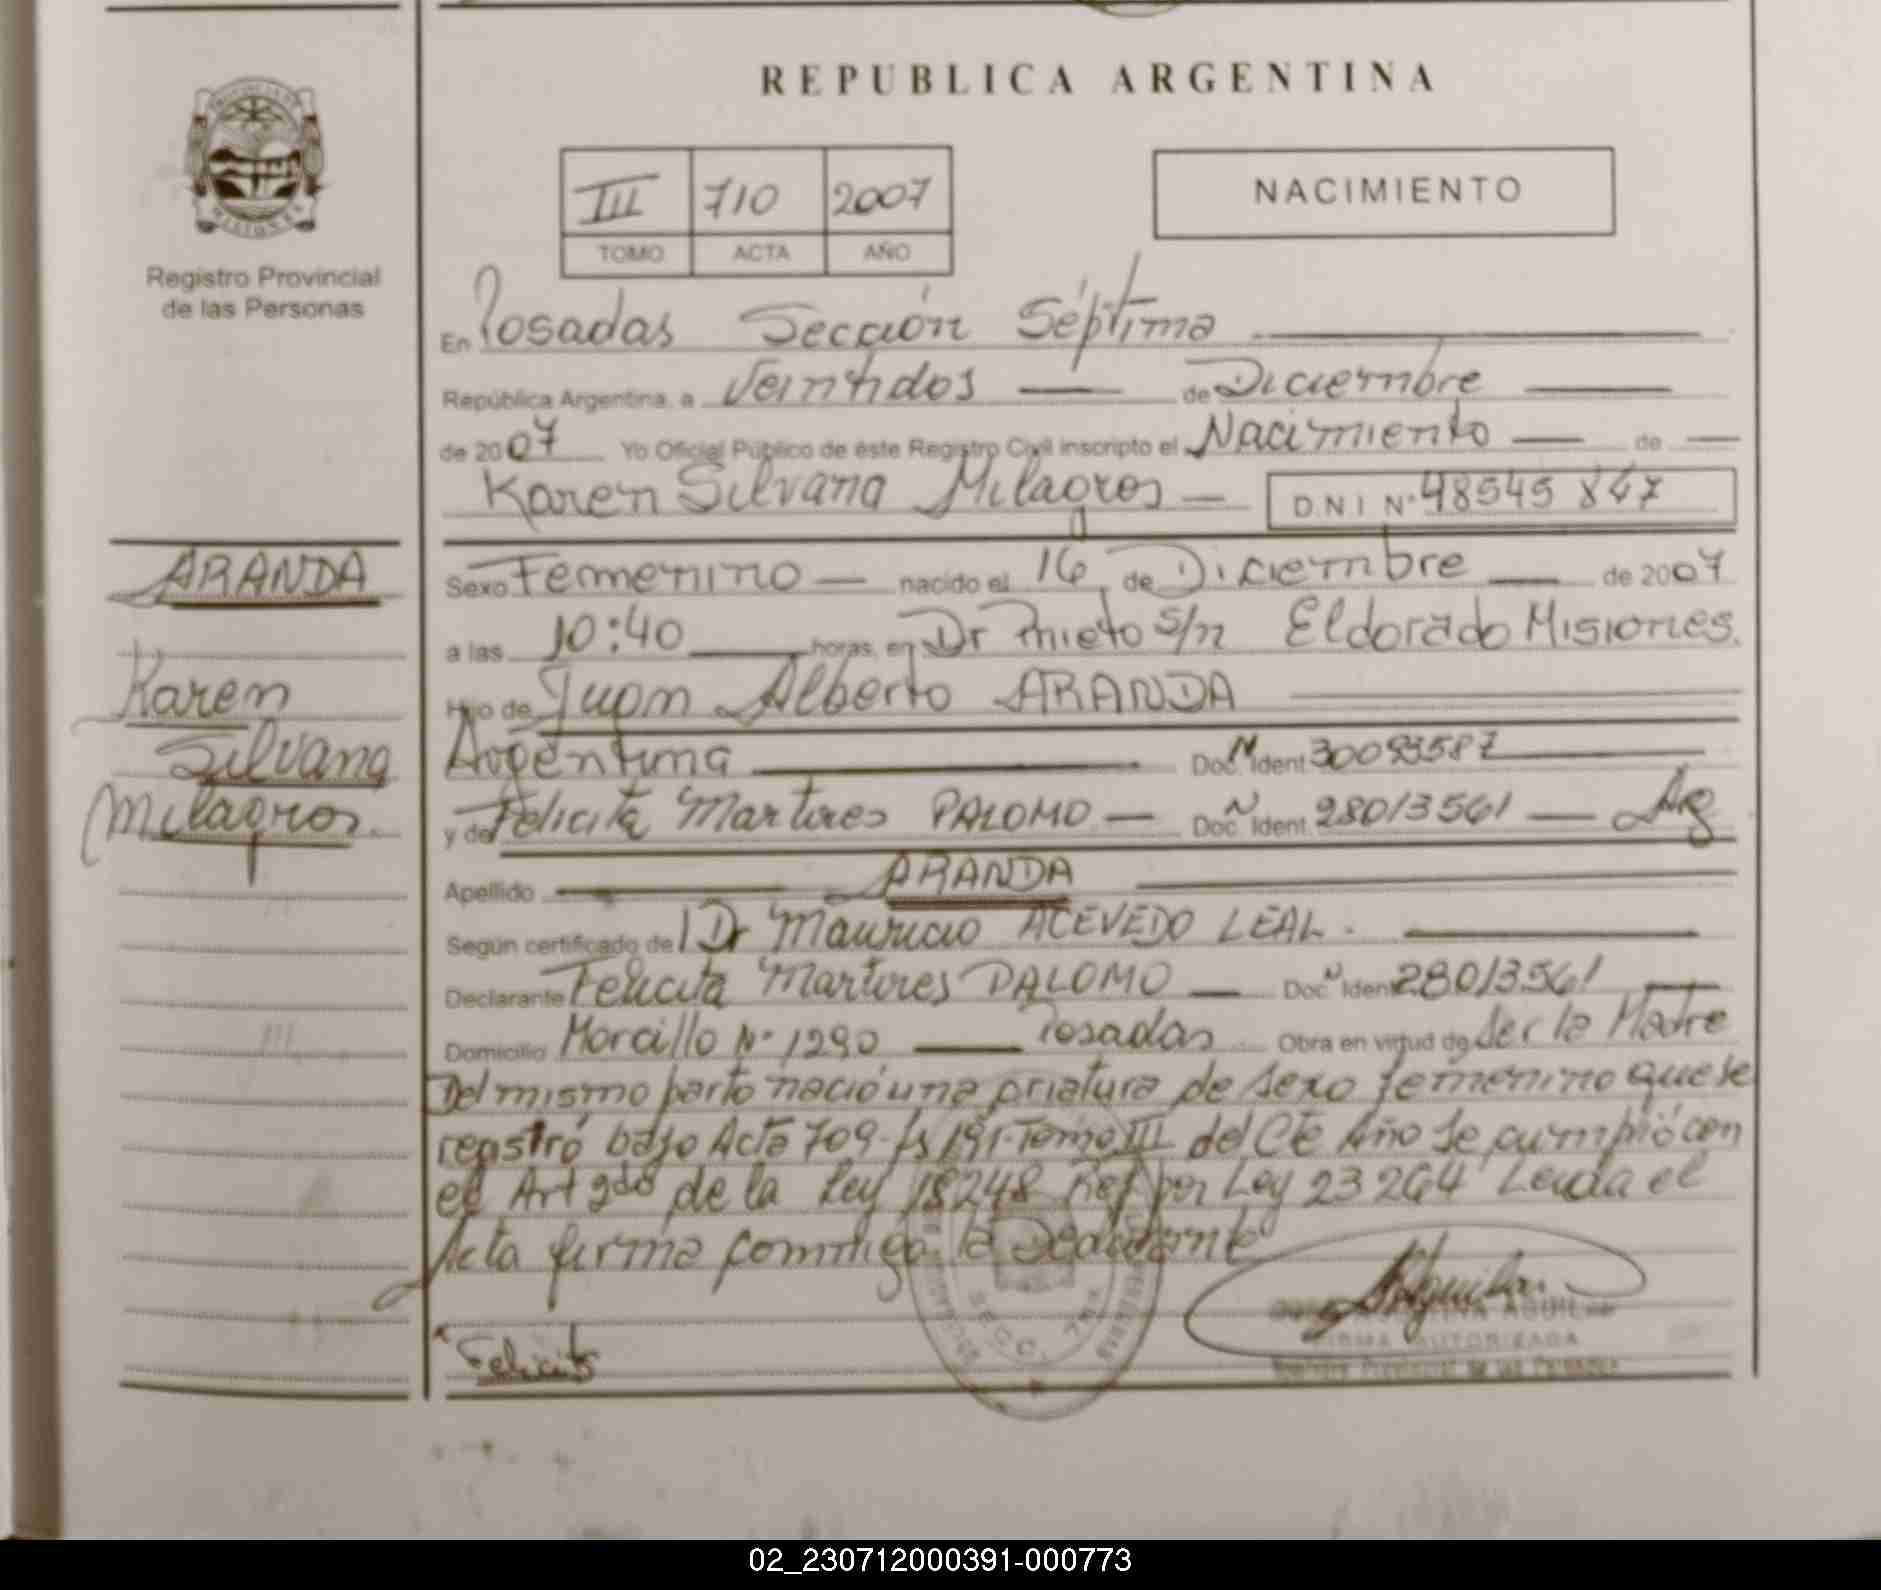 REPUBLICA ARGENTINA
III 710 2007
TOMO ACTA AÑO
NACIMIENTO
Registro Provincial
de las Personas
En Posadas Sección Séptima
República Argentina, a Veintidos de Diciembre
de 2007 Yo Oficial Público de éste Registro Civil inscripto el Nacimiento de
Karen Silvana Milagros DNI Nº 48545847
ARANDA
Karen
Silvana
Milagros.
Sexo Femenino nacido el 16 de Diciembre de 2007
a las 10:40 horas, en Dr Prieto s/n Eldorado Misiones.
Hijo de Juan Alberto ARANDA
Argentina Doc. Ident.
y de Felicita Martires PALOMO Doc. Ident. 28013561 Arg
Apellido ARANDA
Según certificado del Dr Mauricio ACEVEDO LEAL.
Declarante Felicita Martires PALOMO Doc. Ident. 28013561
Domicilio Morcillo Nº 1290 Posadas Obra en virtud de Ser la Madre
Del mismo parto nació una criatura de sexo femenino que se
registró bajo Acta 709-fs 191-Tomo III del Cte Año Se cumplió con
el Art 2do de la Ley 18248 Ref por Ley 23264 Leida el
Acta firma conmigo la Declarante
Felicita
AGUILAR
FIRMA AUTORIZADA
Registro Provincial de las Personas
SECC. 7ma
02_230712000391-000773